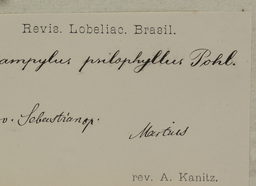 Revis. Lobeliac. Brasil.
ampylus psilophyllus Pohl.
v. Sebastianop.
Martius
rev. A. Kanitz.